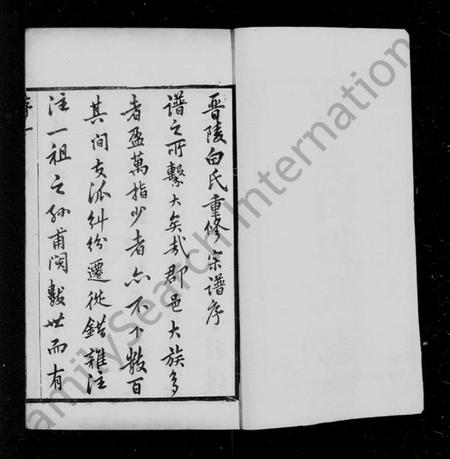 晋陵白氏重修宗谱序
谱之所繫大矣哉郡邑大族多
者盈萬指少者亦不下數百
其间支派糾纷遷徙錯雜注
注一祖之孙甫閱數世而有
序一
FamilySearch International